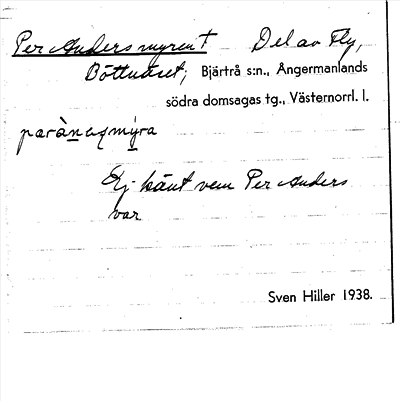 Per Anders myren † Del av Fly,
Böttnäset; Bjärtrå s:n., Ångermanlands
södra domsagas tg., Västernorrl. l.
paràn aṇmýra
Ej känt vem Per Anders
var
Sven Hiller 1938.